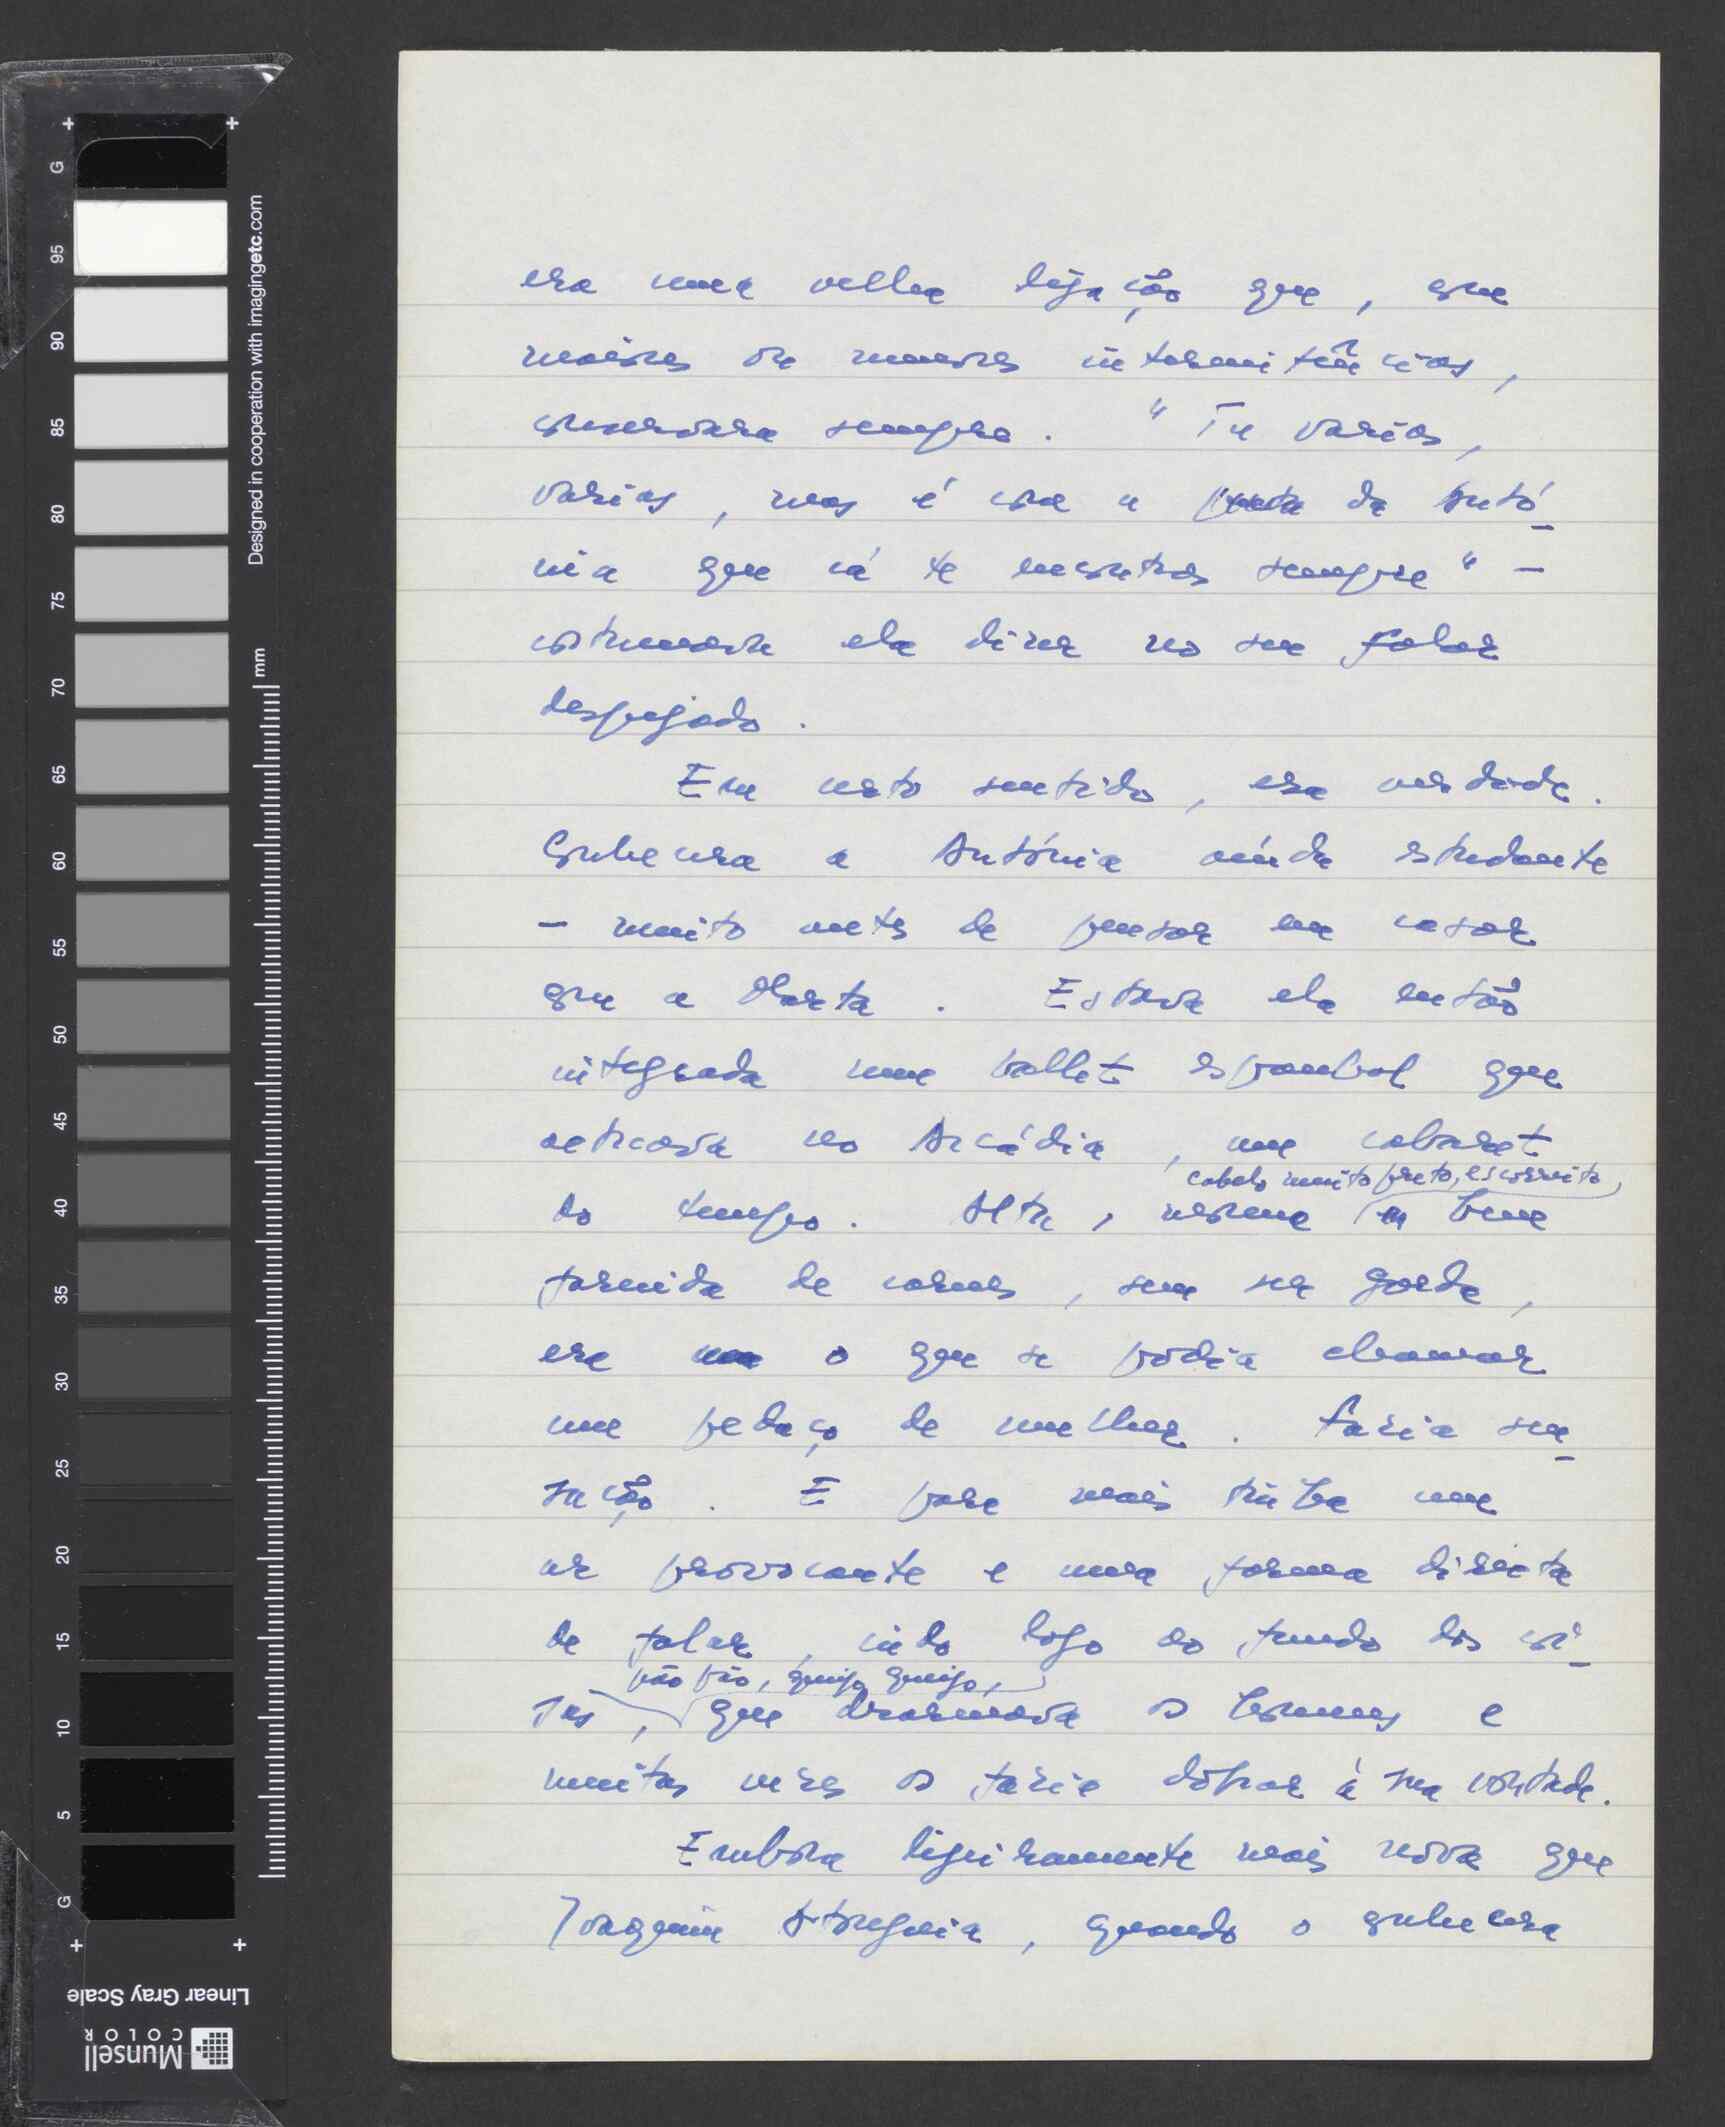 G
95
90
85
80
75
70
65
60
55
50
45
40
35
30
25
20
15
10
5
G
mm
Designed in cooperation with imagingetc.com
Linear Gray Scale
Munsell
COLOR
era uma velha ligação que, com
maiores ou menores intermitências,
conservara sempre. "Tu varias,
varias, mas é com a puta da Antó-
nia que cá te encontras sempre" –
costumava ela dizer no seu falar
despejado.
Em certo sentido, era verdade.
Conhecera a Antónia ainda estudante
– muito antes de pensar em casar
com a Marta. Estava ela então
integrada num ballet espanhol que
actuava no Arcádia, um cabaret
cabelo muito preto, escorreito,
do tempo. Alta, morena, bem
fornida de carnes, sem ser gorda,
era o que se podia chamar
um pedaço de mulher. Fazia sen-
sação. E para mais tinha um
ar provocante e uma forma directa
de falar, indo logo ao fundo das coi-
pão pão, queijo queijo,
sas, que desarmava os homens e
muitas vezes os fazia dobrar à sua vontade.
Embora ligeiramente mais nova que
Joaquim, quando o conhecera